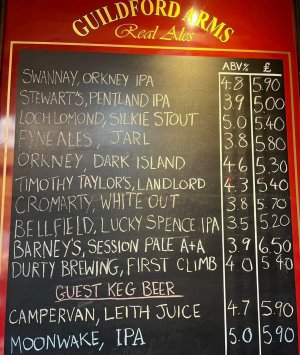 GUILDFORD ARMS
Real Ales
ABV% £
SWANNAY, ORKNEY IPA 4.8 5.70
STEWART'S, PENTLAND IPA 3.9 5.00
LOCH LOMOND, SILKIE STOUT 5.0 5.40
FYNE ALES, JARL 3.8 5.80
ORKNEY, DARK ISLAND 4.6 5.30
TIMOTHY TAYLOR'S, LANDLORD 4.3 5.40
CROMARTY, WHITE OUT 3.8 5.70
BELLFIELD, LUCKY SPENCE IPA 3.5 5.20
BARNEY'S, SESSION PALE A+A 3.9 6.50
DURTY BREWING, FIRST CLIMB 4.0 5.40
GUEST KEG BEER
CAMPERVAN, LEITH JUICE 4.7 5.90
MOONWAKE, IPA 5.0 5.90